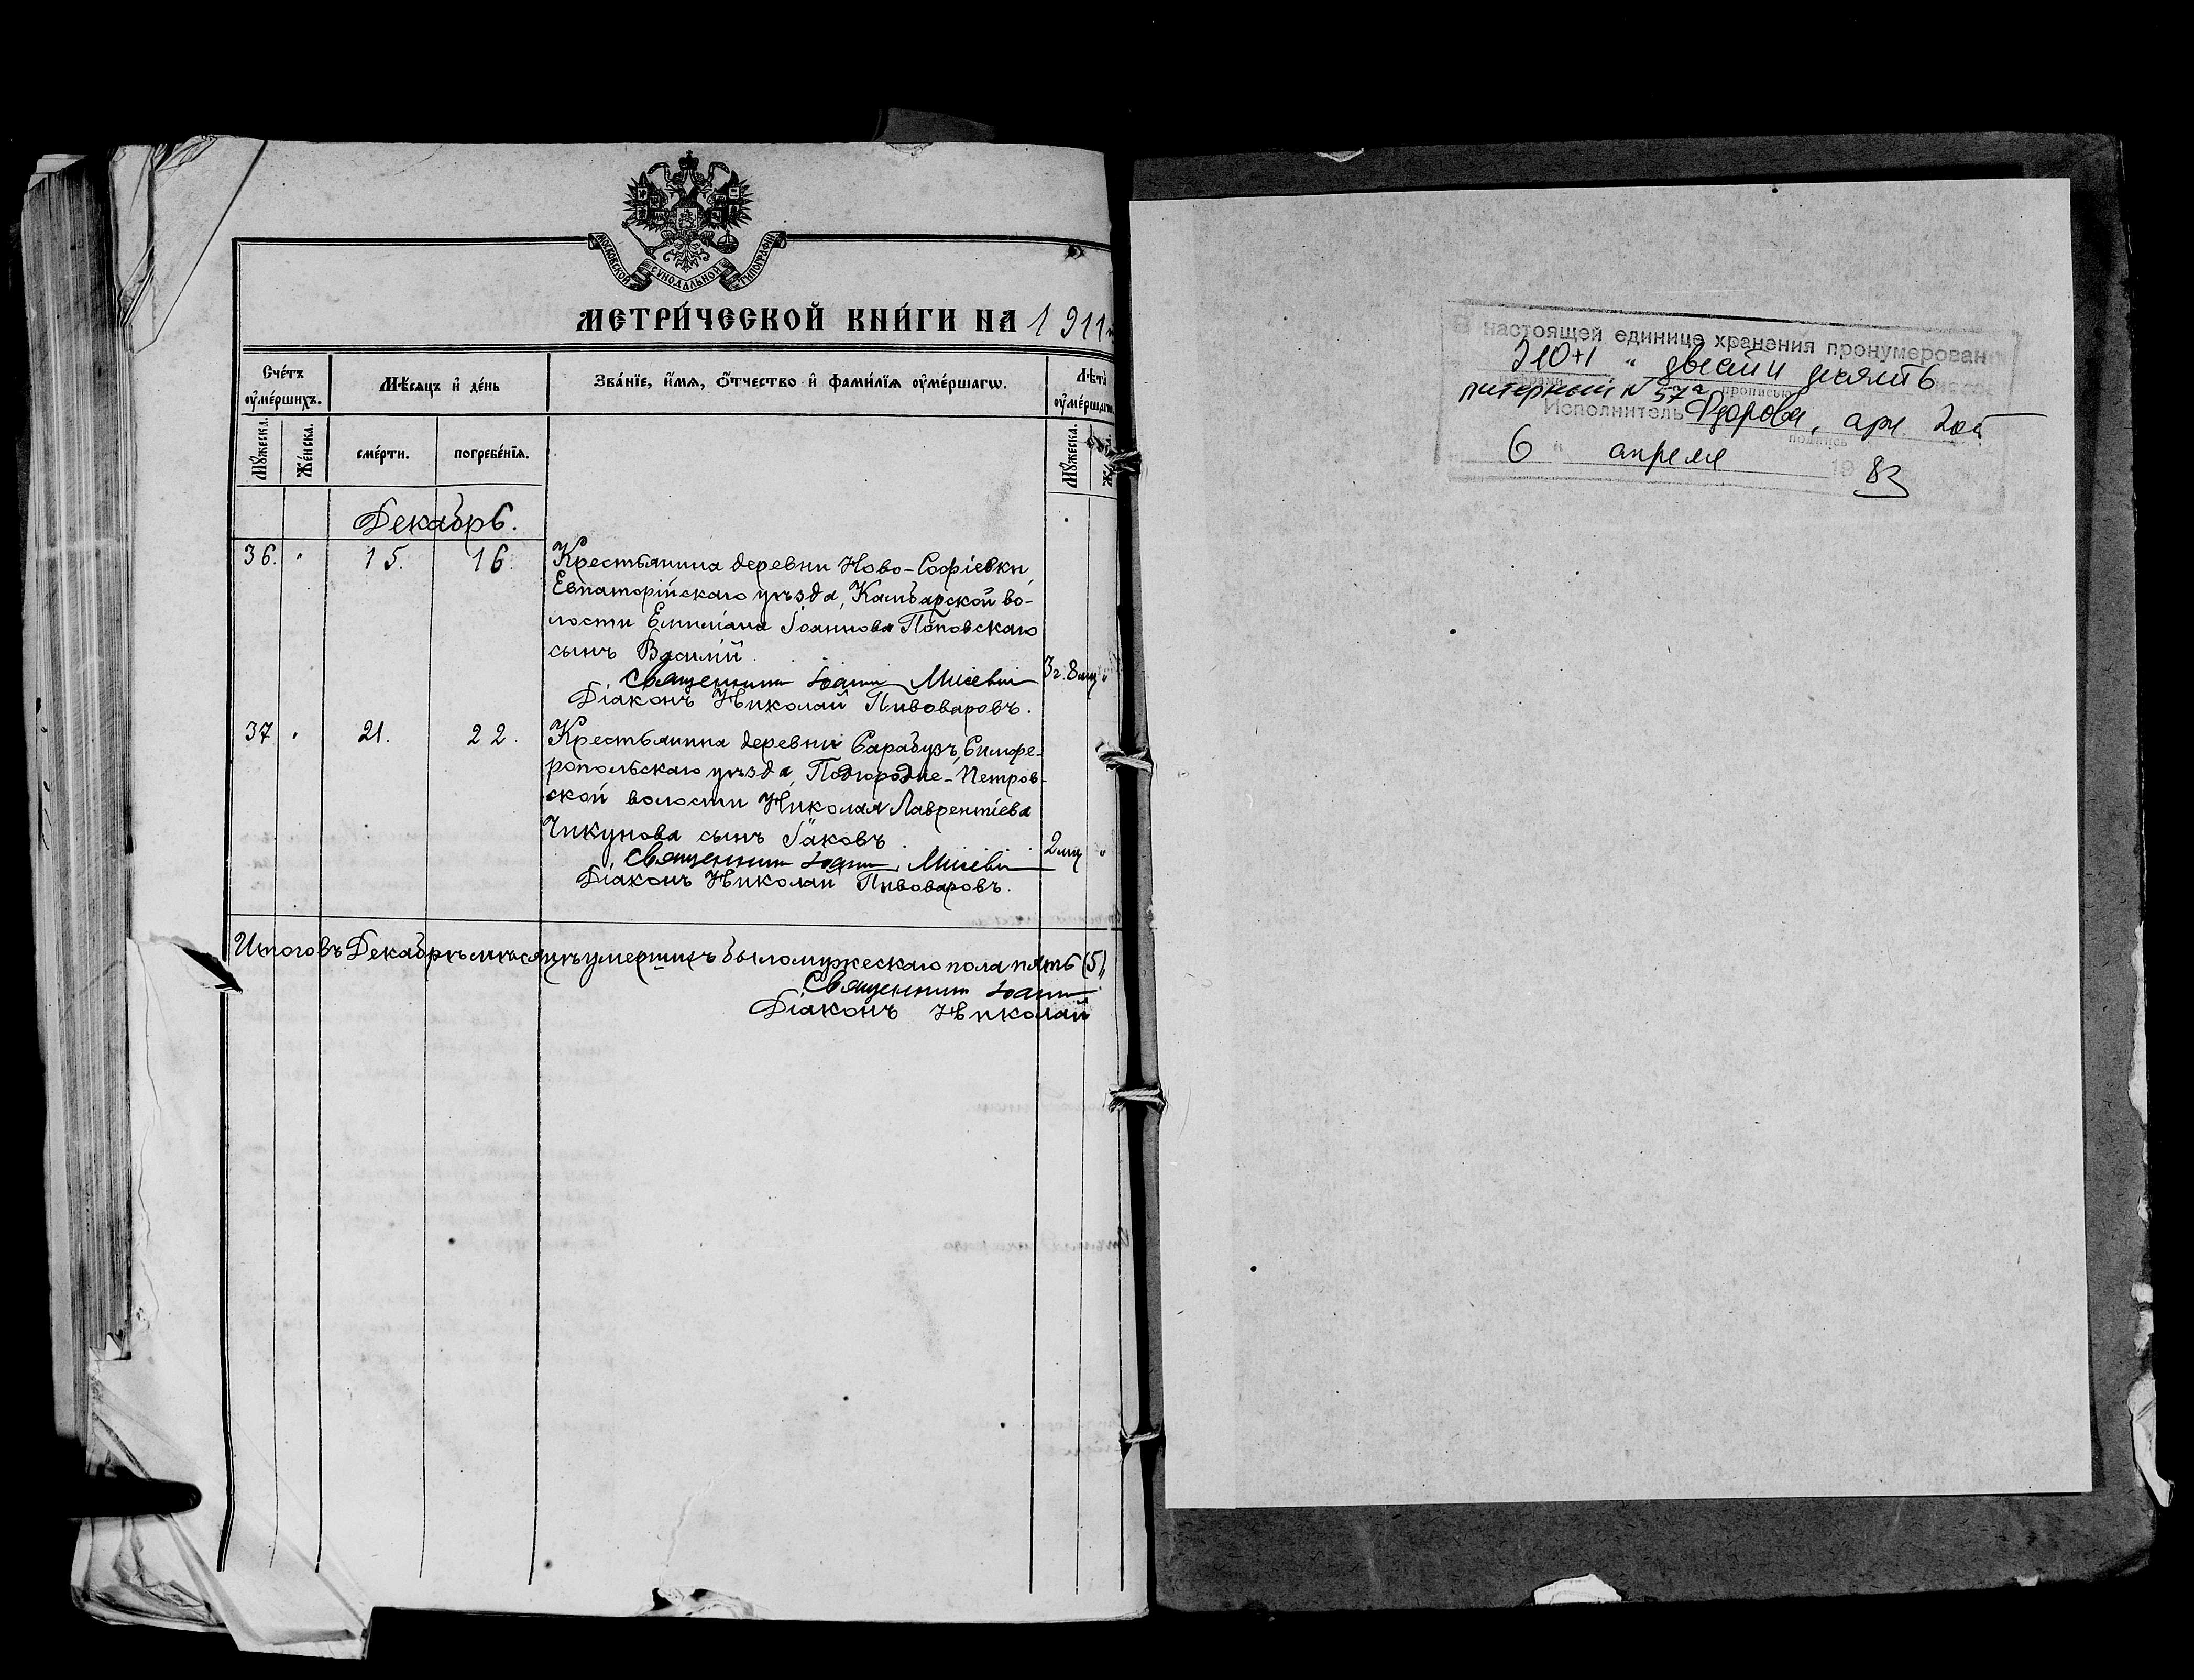 МОСКОВСКОЙ СѴНОДАЛЬНОЙ ТИПОГРАФІИ
МЕТРИ́ЧЕСКОЙ КНИ́ГИ НА 1911
Сче́тъ оу҆ме́ршихъ.
Мѣ́сяцъ и҆ де́нь
Зва́нїе, и҆́мѧ, ѻ҆́тчество и҆ фами́лїѧ оу҆ме́ршагѡ.
Лѣта̀ оу҆ме́ршагѡ
Мꙋ́жеска.
Же́нска.
сме́рти.
погребе́нїѧ.
Мꙋ́жеска.
Декабрь.
36. " 15. 16. Крестьянина деревни Ново-Софіевки
Евпаторійскаго уѣзда, Камбарской во-
лости Емиліана Іоаннова Поповскаго
сынъ Василій. 3г. 8мц "
Священникъ Іоаннъ
Діаконъ Николай Пивоваровъ.
37 " 21. 22. Крестьянина деревни Сарабузъ, Симфе-
ропольскаго уѣзда, Подгородне-Петров-
ской волости Николая Лаврентіева
Чикунова сынъ Іаковъ. 2мц "
Священникъ Іоаннъ
Діаконъ Николай Пивоваровъ.
Итого въ Декабрѣ мѣсяцѣ умершихъ было мужескаго пола пять (5)
Священникъ Іоаннъ
Діаконъ Николай
В настоящей единице хранения пронумерован
210+1 " двести десять
литерный № 57а прописью
Исполнитель арх.
подпись
6 " апреля 1983